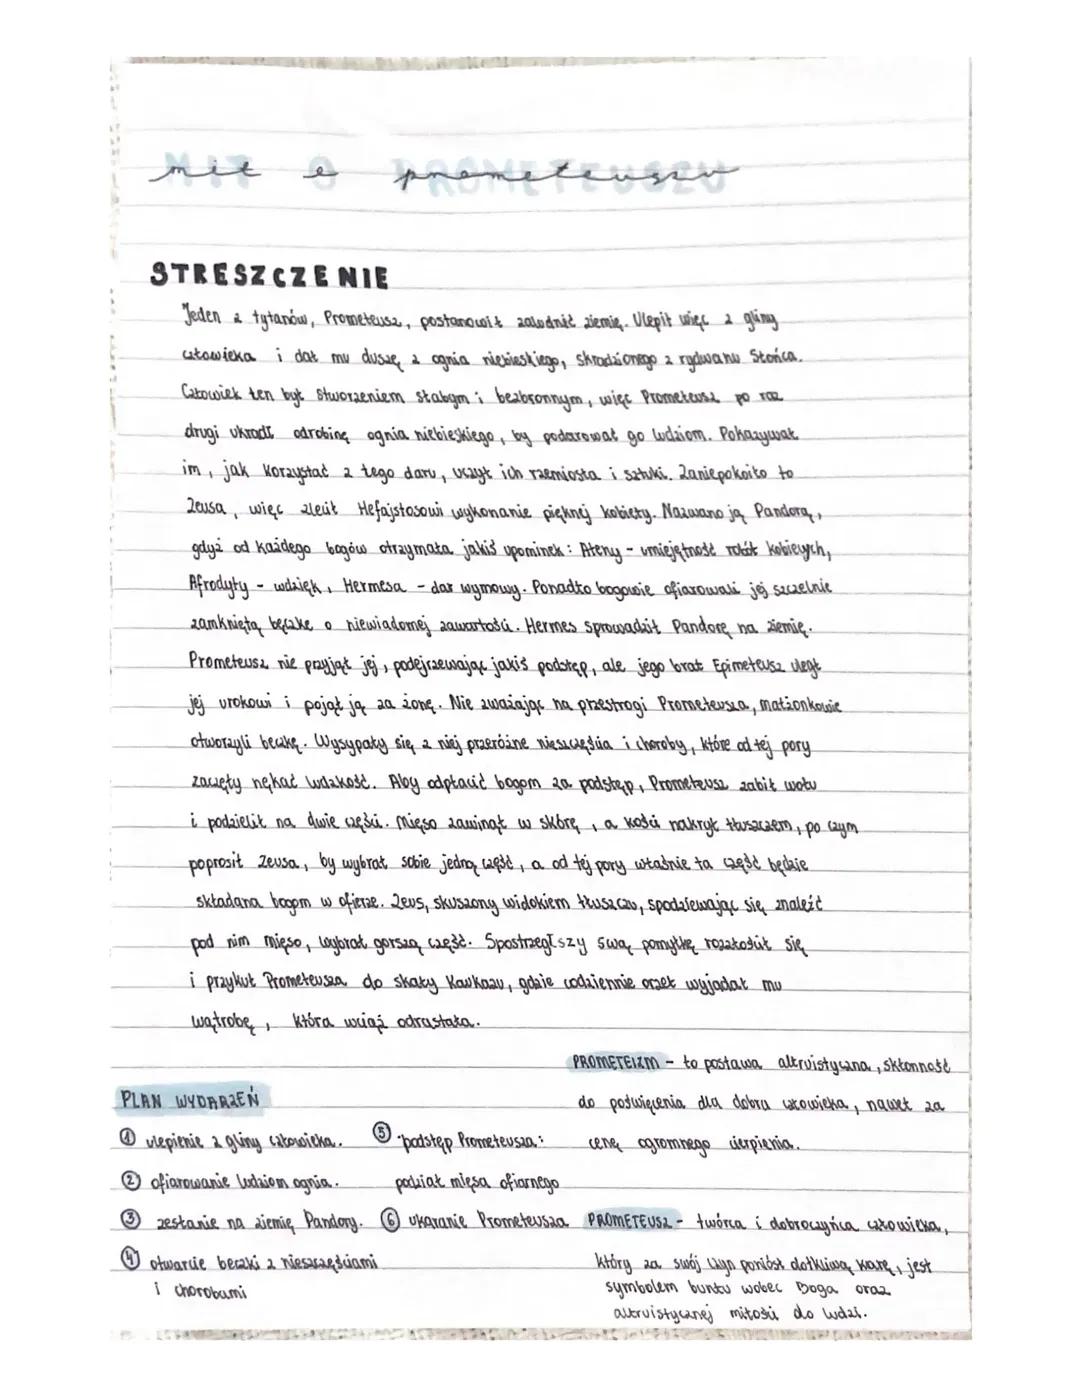 mit o prometeuszu
STRESZCZENIE
Jeden z tytanów, Prometeusz, postanowił zaludnić ziemię. Ulepił więc z gliny
człowieka i dał mu duszę z ognia niebieskiego, skradzionego z rydwanu Słońca.
Człowiek ten był stworzeniem słabym i bezbronnym, więc Prometeusz po raz
drugi ukradł odrobinę ognia niebieskiego, by podarować go ludziom. Pokazywał
im, jak korzystać z tego daru, uczył ich rzemiosła i sztuki. Zaniepokoiło to
Zeusa, więc zlecił Hefajstosowi wykonanie pięknej kobiety. Nazwano ją Pandorą,
gdyż od każdego bogów otrzymała jakiś upominek: Ateny - umiejętność robót kobiecych,
Afrodyty - wdzięk, Hermesa - dar wymowy. Ponadto bogowie ofiarowali jej szczelnie
zamkniętą beczkę o niewiadomej zawartości. Hermes sprowadził Pandorę na ziemię.
Prometeusz nie przyjął jej, podejrzewając jakiś podstęp, ale jego brat Epimeteusz uległ
jej urokowi i pojął ją za żonę. Nie zważając na przestrogi Prometeusza, małżonkowie
otworzyli beczkę. Wysypały się z niej przeróżne nieszczęścia i choroby, które od tej pory
zaczęły nękać ludzkość. Aby odpłacić bogom za podstęp, Prometeusz zabił wołu
i podzielił na dwie części. Mięso zawinął w skórę, a kości nakrył tłuszczem, po czym
poprosił Zeusa, by wybrał sobie jedną część, a od tej pory właśnie ta część będzie
składana bogom w ofierze. Zeus, skuszony widokiem tłuszczu, spodziewając się znaleźć
pod nim mięso, wybrał gorszą część. Spostrzegłszy swą pomyłkę rozzłościł się
i przykuł Prometeusza do skały Kaukazu, gdzie codziennie orzeł wyjadał mu
wątrobę, która wciąż odrastała.
PLAN WYDARZEŃ
① ulepienie z gliny człowieka.
② ofiarowanie ludziom ognia.
③ zesłanie na ziemię Pandory.
④ otwarcie beczki z nieszczęściami
i chorobami
⑤ "podstęp Prometeusza:
podział mięsa ofiarnego
⑥ ukaranie Prometeusza
PROMETEIZM - to postawa altruistyczna, skłonność
do poświęcenia dla dobra człowieka, nawet za
cenę ogromnego cierpienia.
PROMETEUSZ - twórca i dobroczyńca człowieka,
który za swój czyn poniósł dotkliwą karę, jest
symbolem buntu wobec Boga oraz
altruistycznej miłości do ludzi.